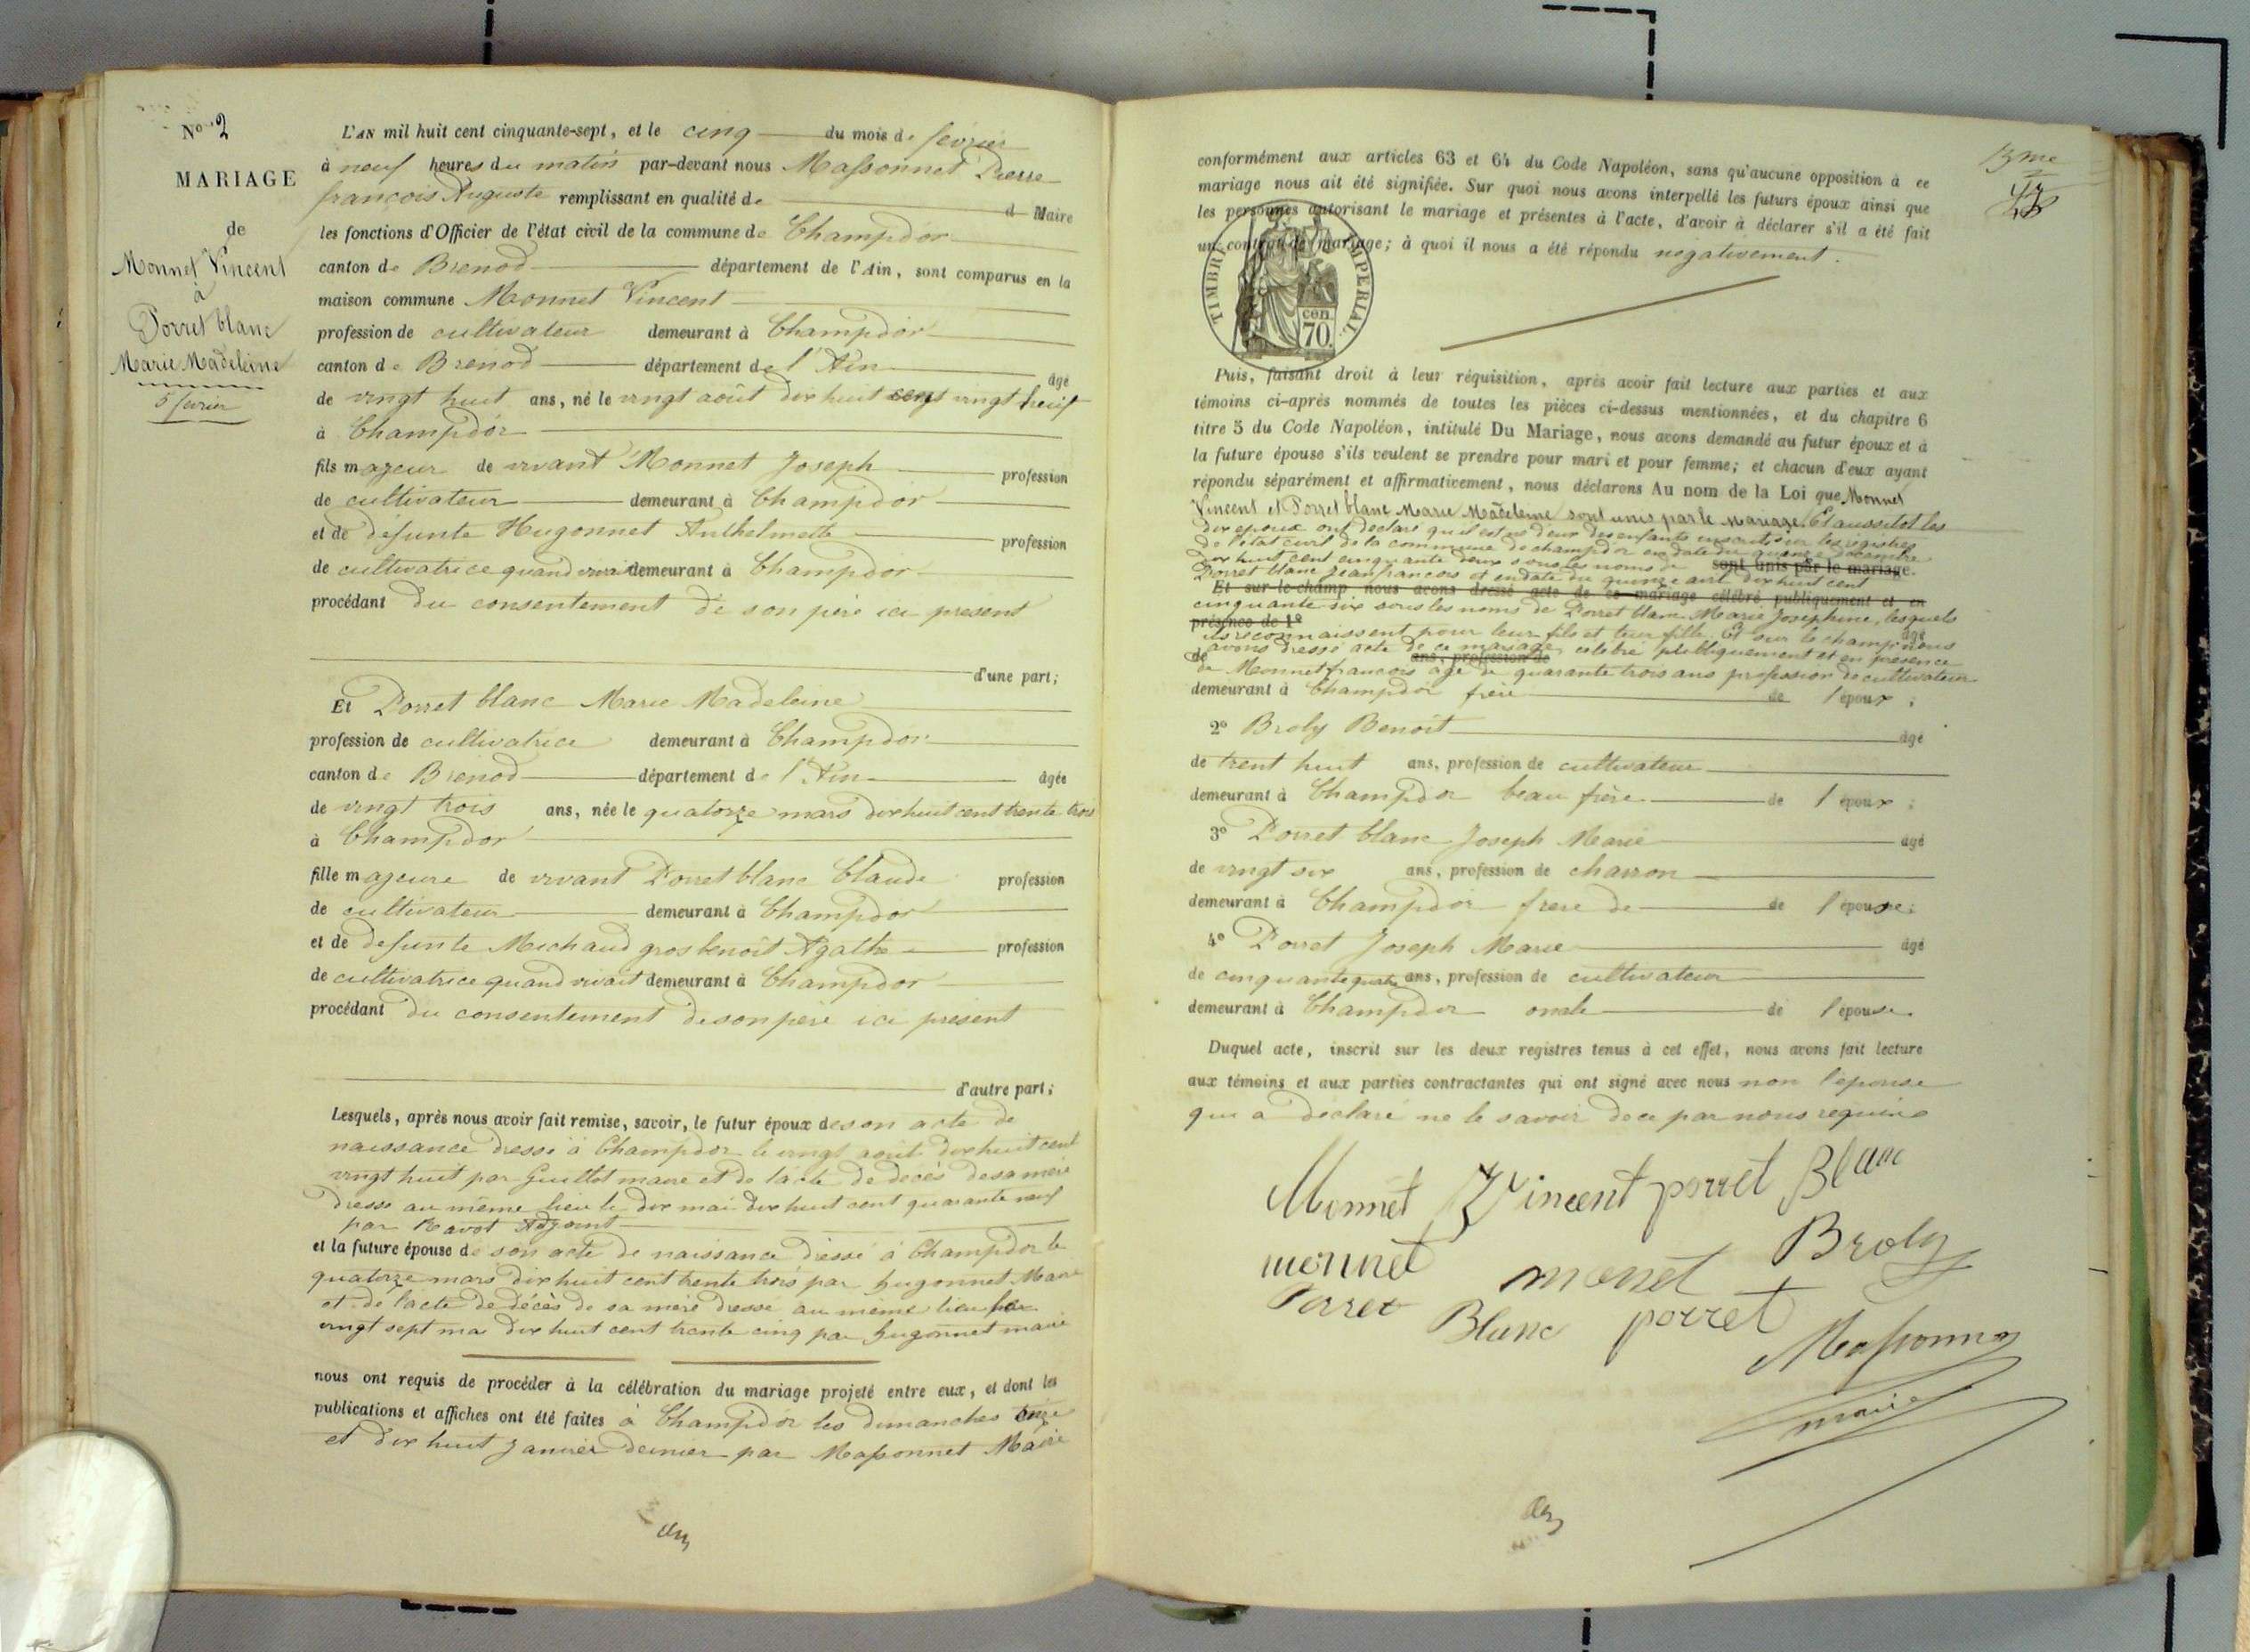 No 2
MARIAGE
de
Monnet Vincent
à
Porret blanc
Marie Madeleine
5 fevrier
L'AN mil huit cent cinquante-sept, et le cinq du mois de fevrier
à neuf heures du matin par-devant nous Massonnet Pierre
françois Auguste remplissant en qualité de d Maire
les fonctions d'Officier de l'état civil de la commune de Champdor
canton de Brenod département de l'Ain, sont comparus en la
maison commune Monnet Vincent
profession de cultivateur demeurant à Champdor
canton de Brenod département de l'Ain âgé
de vingt huit ans, né le vingt août dix huit cent vingt huit
à Champdor
fils majeur de vivant Monnet Joseph profession
de cultivateur demeurant à Champdor
et de defunte Hugonnet Anthelmette profession
de cultivatrice quand vivait demeurant à Champdor
procédant du consentement de son père ici present
d'une part;
Et Porret blanc Marie Madeleine
profession de cultivatrice demeurant à Champdor
canton de Brenod département de l'Ain âgée
de vingt trois ans, née le quatorze mars dix huit cent trente trois
à Champdor
fille majeure de vivant Porret blanc Claude profession
de cultivateur demeurant à Champdor
et de defunte Michaud gros benoît Agathe profession
de cultivatrice quand vivait demeurant à Champdor
procédant du consentement de son père ici present
d'autre part;
Lesquels, après nous avoir fait remise, savoir, le futur époux de son acte de
naissance dressé à Champdor le vingt août dix huit cent
vingt huit par Guillot maire et de l'acte de décès de sa mère
dressé au même lieu le dix mai dix huit cent quarante neuf
par Ravot Adjoint
et la future épouse de son acte de naissance dressé à Champdor le
quatorze mars dix huit cent trente trois par hugonnet Maire
et de l'acte de décès de sa mère dressé au même lieu le
vingt sept mai dix huit cent trente cinq par hugonnet maire
nous ont requis de procéder à la célébration du mariage projeté entre eux, et dont les
publications et affiches ont été faites à Champdor les dimanches onze
et dix huit Janvier dernier par Massonnet Maire
13me
conformément aux articles 63 et 64 du Code Napoléon, sans qu'aucune opposition à ce
mariage nous ait été signifiée. Sur quoi nous avons interpellé les futurs époux ainsi que
les personnes autorisant le mariage et présentes à l'acte, d'avoir à déclarer s'il a été fait
un contrat de mariage; à quoi il nous a été répondu négativement.
TIMBRE IMPERIAL
cen. 70.
Puis, faisant droit à leur réquisition, après avoir fait lecture aux parties et aux
témoins ci-après nommés de toutes les pièces ci-dessus mentionnées, et du chapitre 6
titre 5 du Code Napoléon, intitulé Du Mariage, nous avons demandé au futur époux et à
la future épouse s'ils veulent se prendre pour mari et pour femme; et chacun d'eux ayant
répondu séparément et affirmativement, nous déclarons Au nom de la Loi que Monnet
Vincent et Porret blanc Marie Madeleine sont unis par le Mariage. Et aussitot les
dix epoux ont declaré qu'il est né d'eux des enfants inscrits sur les registres
de l'état civil de la commune de champdor en date du quinze décembre
dix huit cent cinquante deux sous les noms de sont unis par le mariage.
Porret blanc Jean françois et en date du quinze avril dix huit cent
Et sur-le-champ nous avons dressé acte de ce mariage célébré publiquement et en
cinquante six sous les noms de Porret blanc Marie Josephine, lesquels
présence de 1°
ils reconnaissent pour leur fils et leur fille. Et sur le champ nous âgé
avons dressé acte de ce mariage célébré publiquement et en presence
de ans, profession de
de Monnet francois agé de quarante trois ans profession de cultivateur
demeurant à Champdor frère de l'époux;
2° Broly Benoit âgé
de trent huit ans, profession de cultivateur
demeurant à Champdor beau frère de l'époux;
3° Porret blanc Joseph Marie âgé
de vingt six ans, profession de charron
demeurant à Champdor frere de de l'épouse;
4° Porret Joseph Marie âgé
de cinquante quatre ans, profession de cultivateur
demeurant à Champdor oncle de l'épouse.
Duquel acte, inscrit sur les deux registres tenus à cet effet, nous avons fait lecture
aux témoins et aux parties contractantes qui ont signé avec nous non l'épouse
qui a declaré ne le savoir de ce par nous requise
Monnet Vincent porret Blanc
monnet monet Broly
Porret Blanc porret
Massonnet
maire